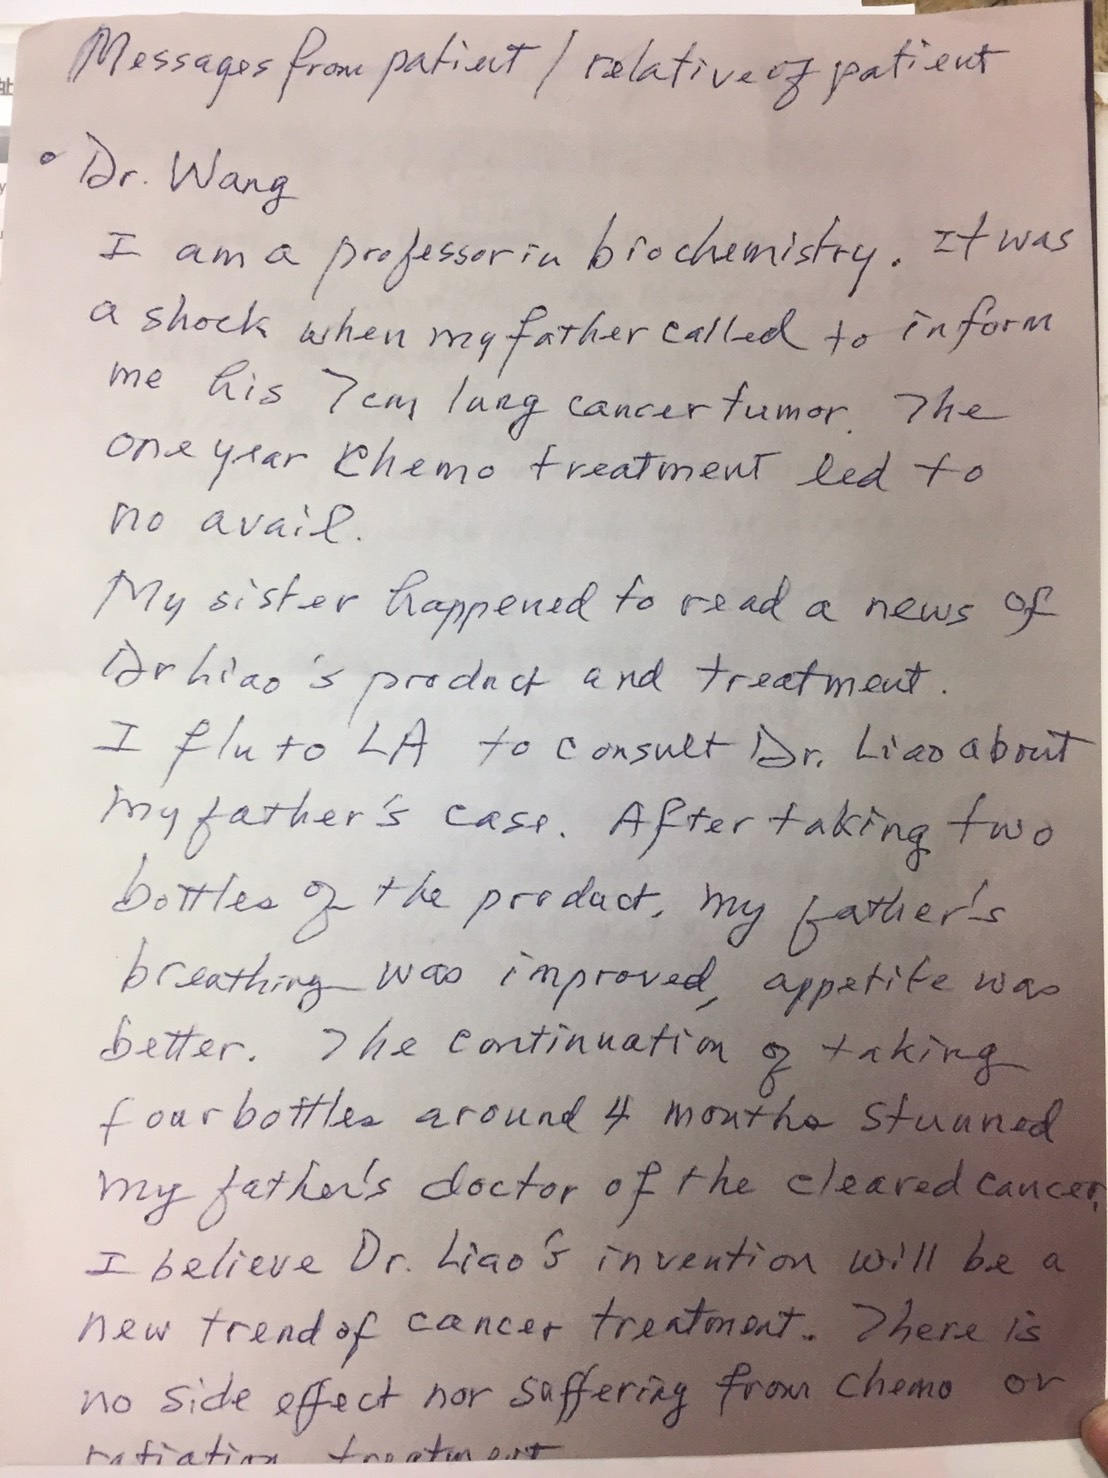 Messages from patient / relative of patient
• Dr. Wang
I am a professor in biochemistry. It was
a shock when my father called to inform
me his 7cm lung cancer tumor. The
one year chemo treatment led to
no avail.
My sister happened to read a news of
Dr Liao's product and treatment.
I flu to LA to consult Dr. Liao about
my father's case. After taking two
bottles of the product, my father's
breathing was improved, appetite was
better. The continuation of taking
four bottles around 4 months stunned
my father's doctor of the cleared cancer.
I believe Dr. Liao's invention will be a
new trend of cancer treatment. There is
no side effect nor suffering from chemo or
treatment